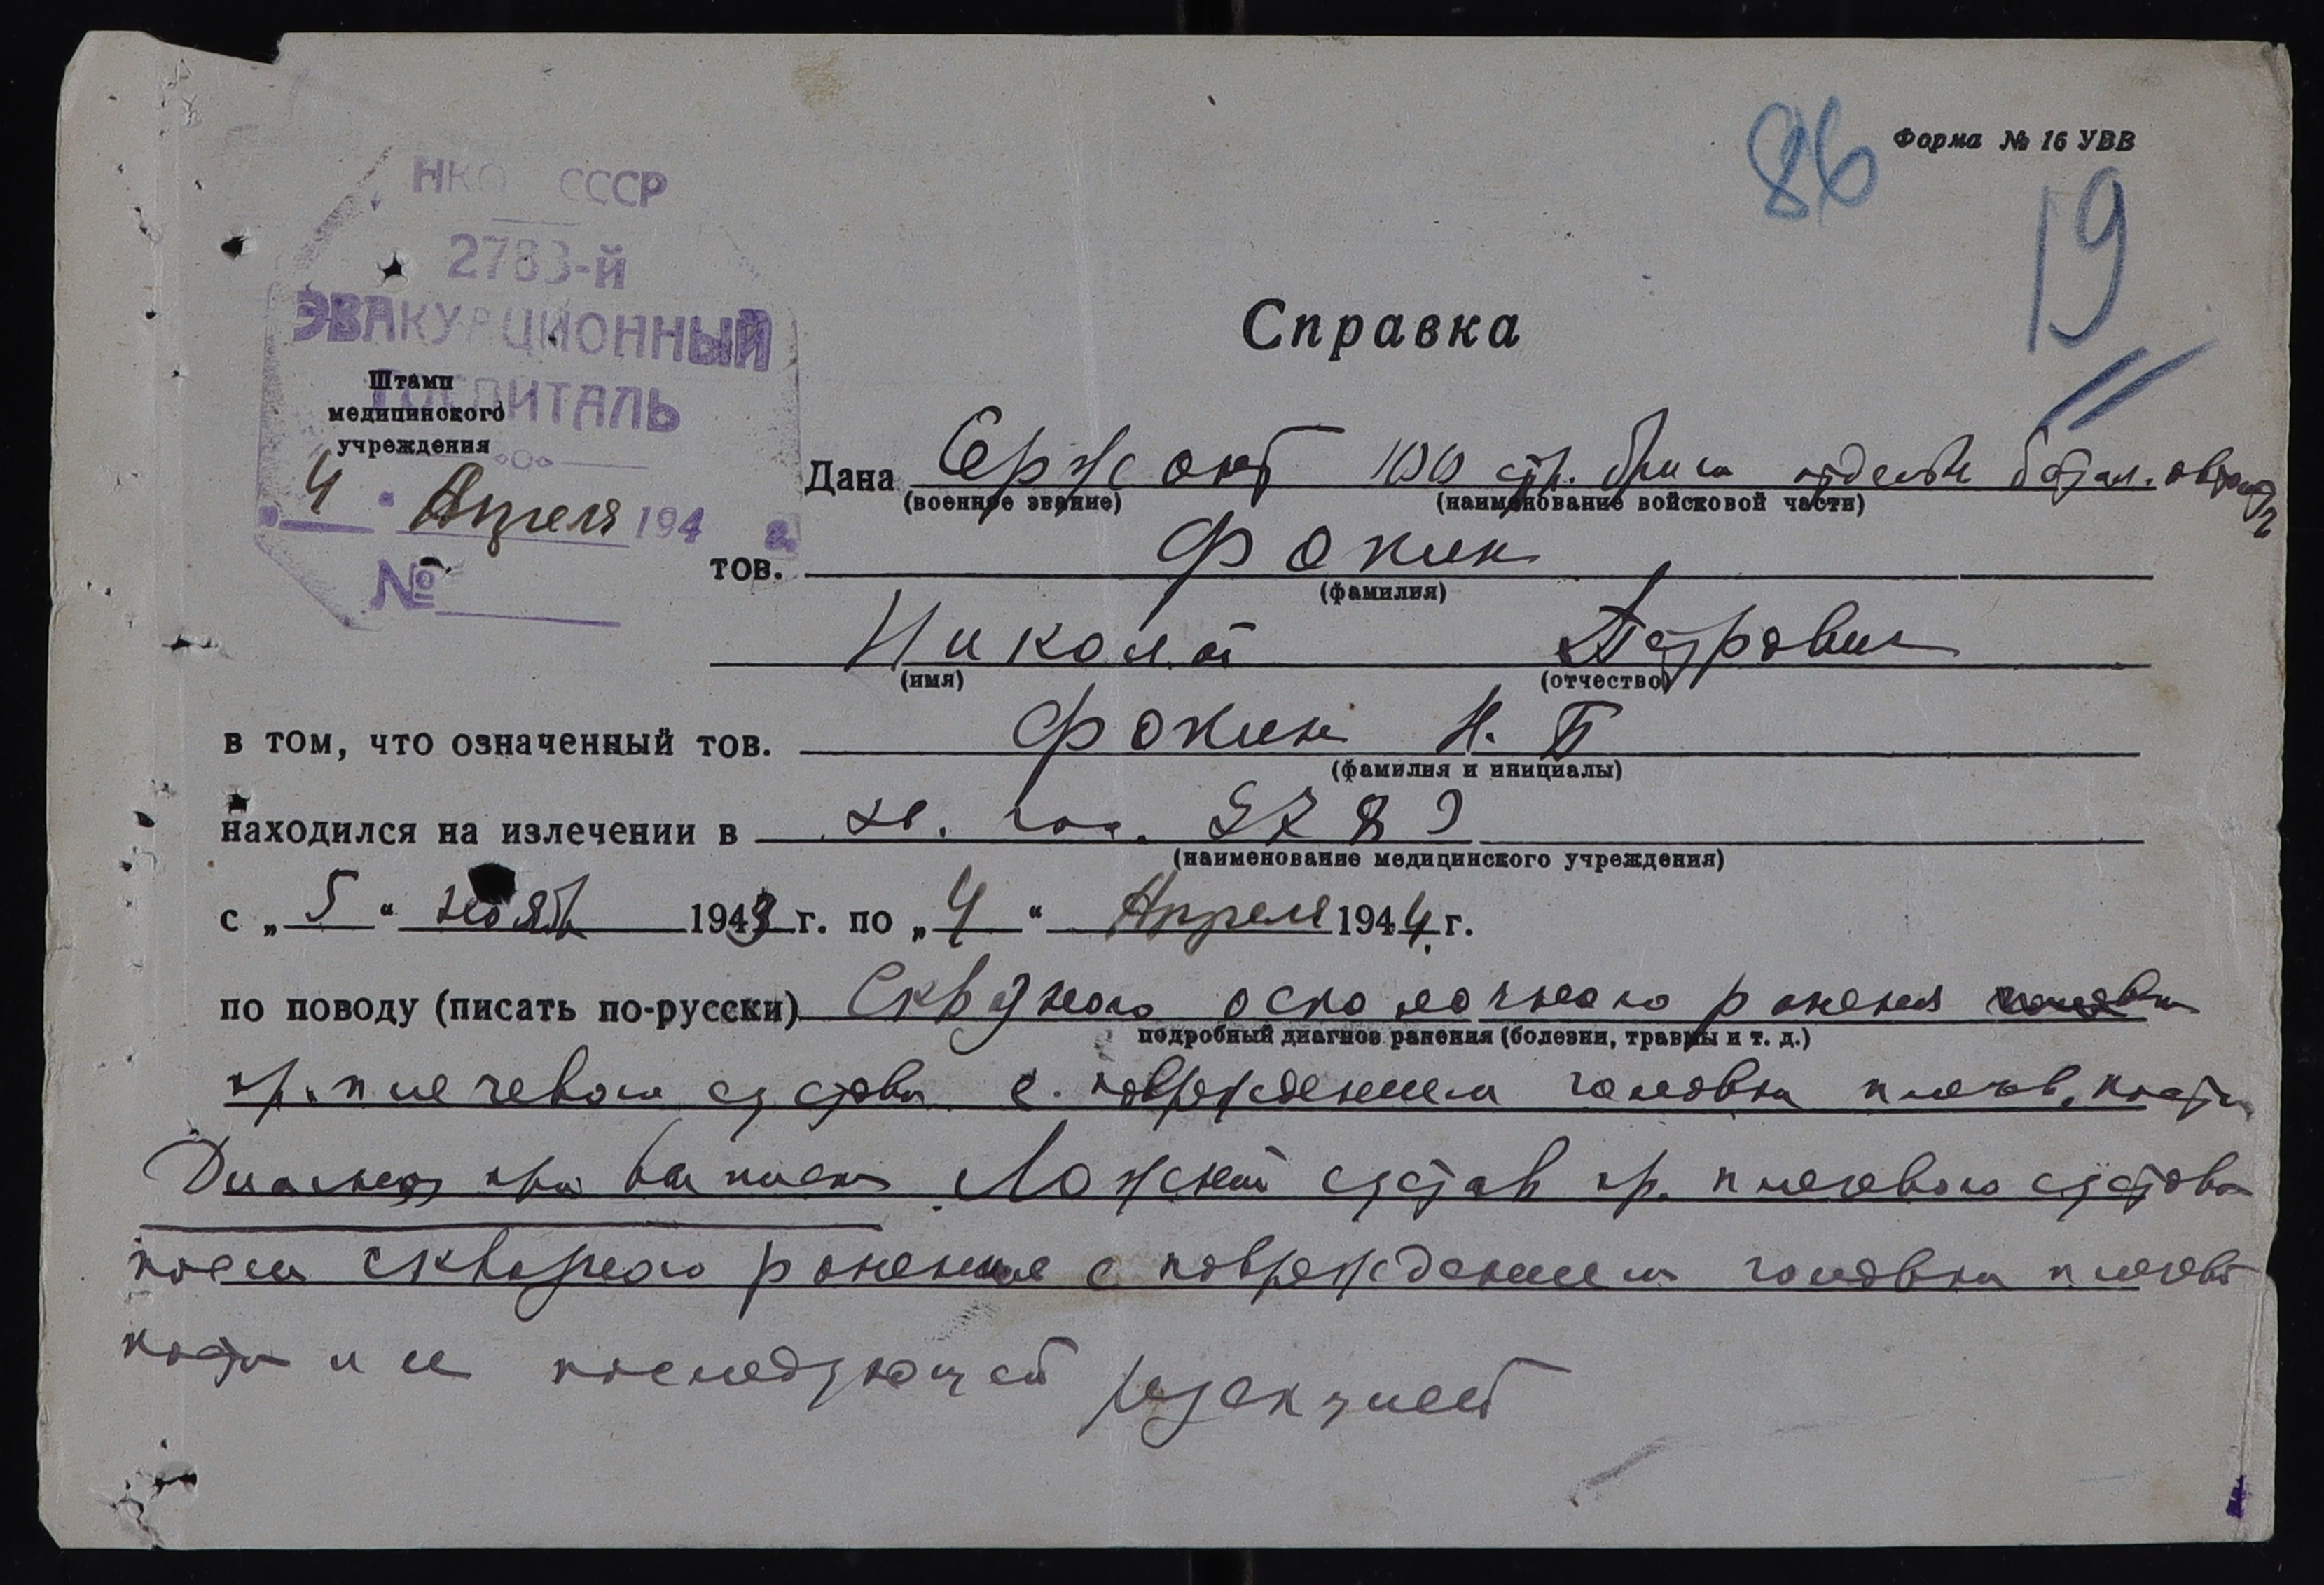 86
Форма № 16 УВВ
19
НКО СССР
2783-й
ЭВАКУАЦИОННЫЙ
ГОСПИТАЛЬ
Штамп
медицинского
учреждения
4 " Апреля 194 г.
№
Справка
Дана Сержант 100 стр. бриг отдельн батал.
(военное звание) (наименование войсковой части)
тов. Фокин
(фамилия)
Николай Петрович
(имя) (отчество)
в том, что означенный тов. Фокин Н. П
(фамилия и инициалы)
находился на излечении в эв. гос. 2783
(наименование медицинского учреждения)
с „ 5 “ нояб 1943 г. по „ 4 “ Апреля 1944 г.
по поводу (писать по-русски) Сквозного осколочного ранения
подробный диагноз ранения (болезни, травмы и т. д.)
пр. плечевого сустава с повреждением головки плечев. кости
Диагноз при выписке Ложный сустав пр. плечевого сустава
после сквозного ранения с повреждением головки плечев
кости и ее последующей резекцией